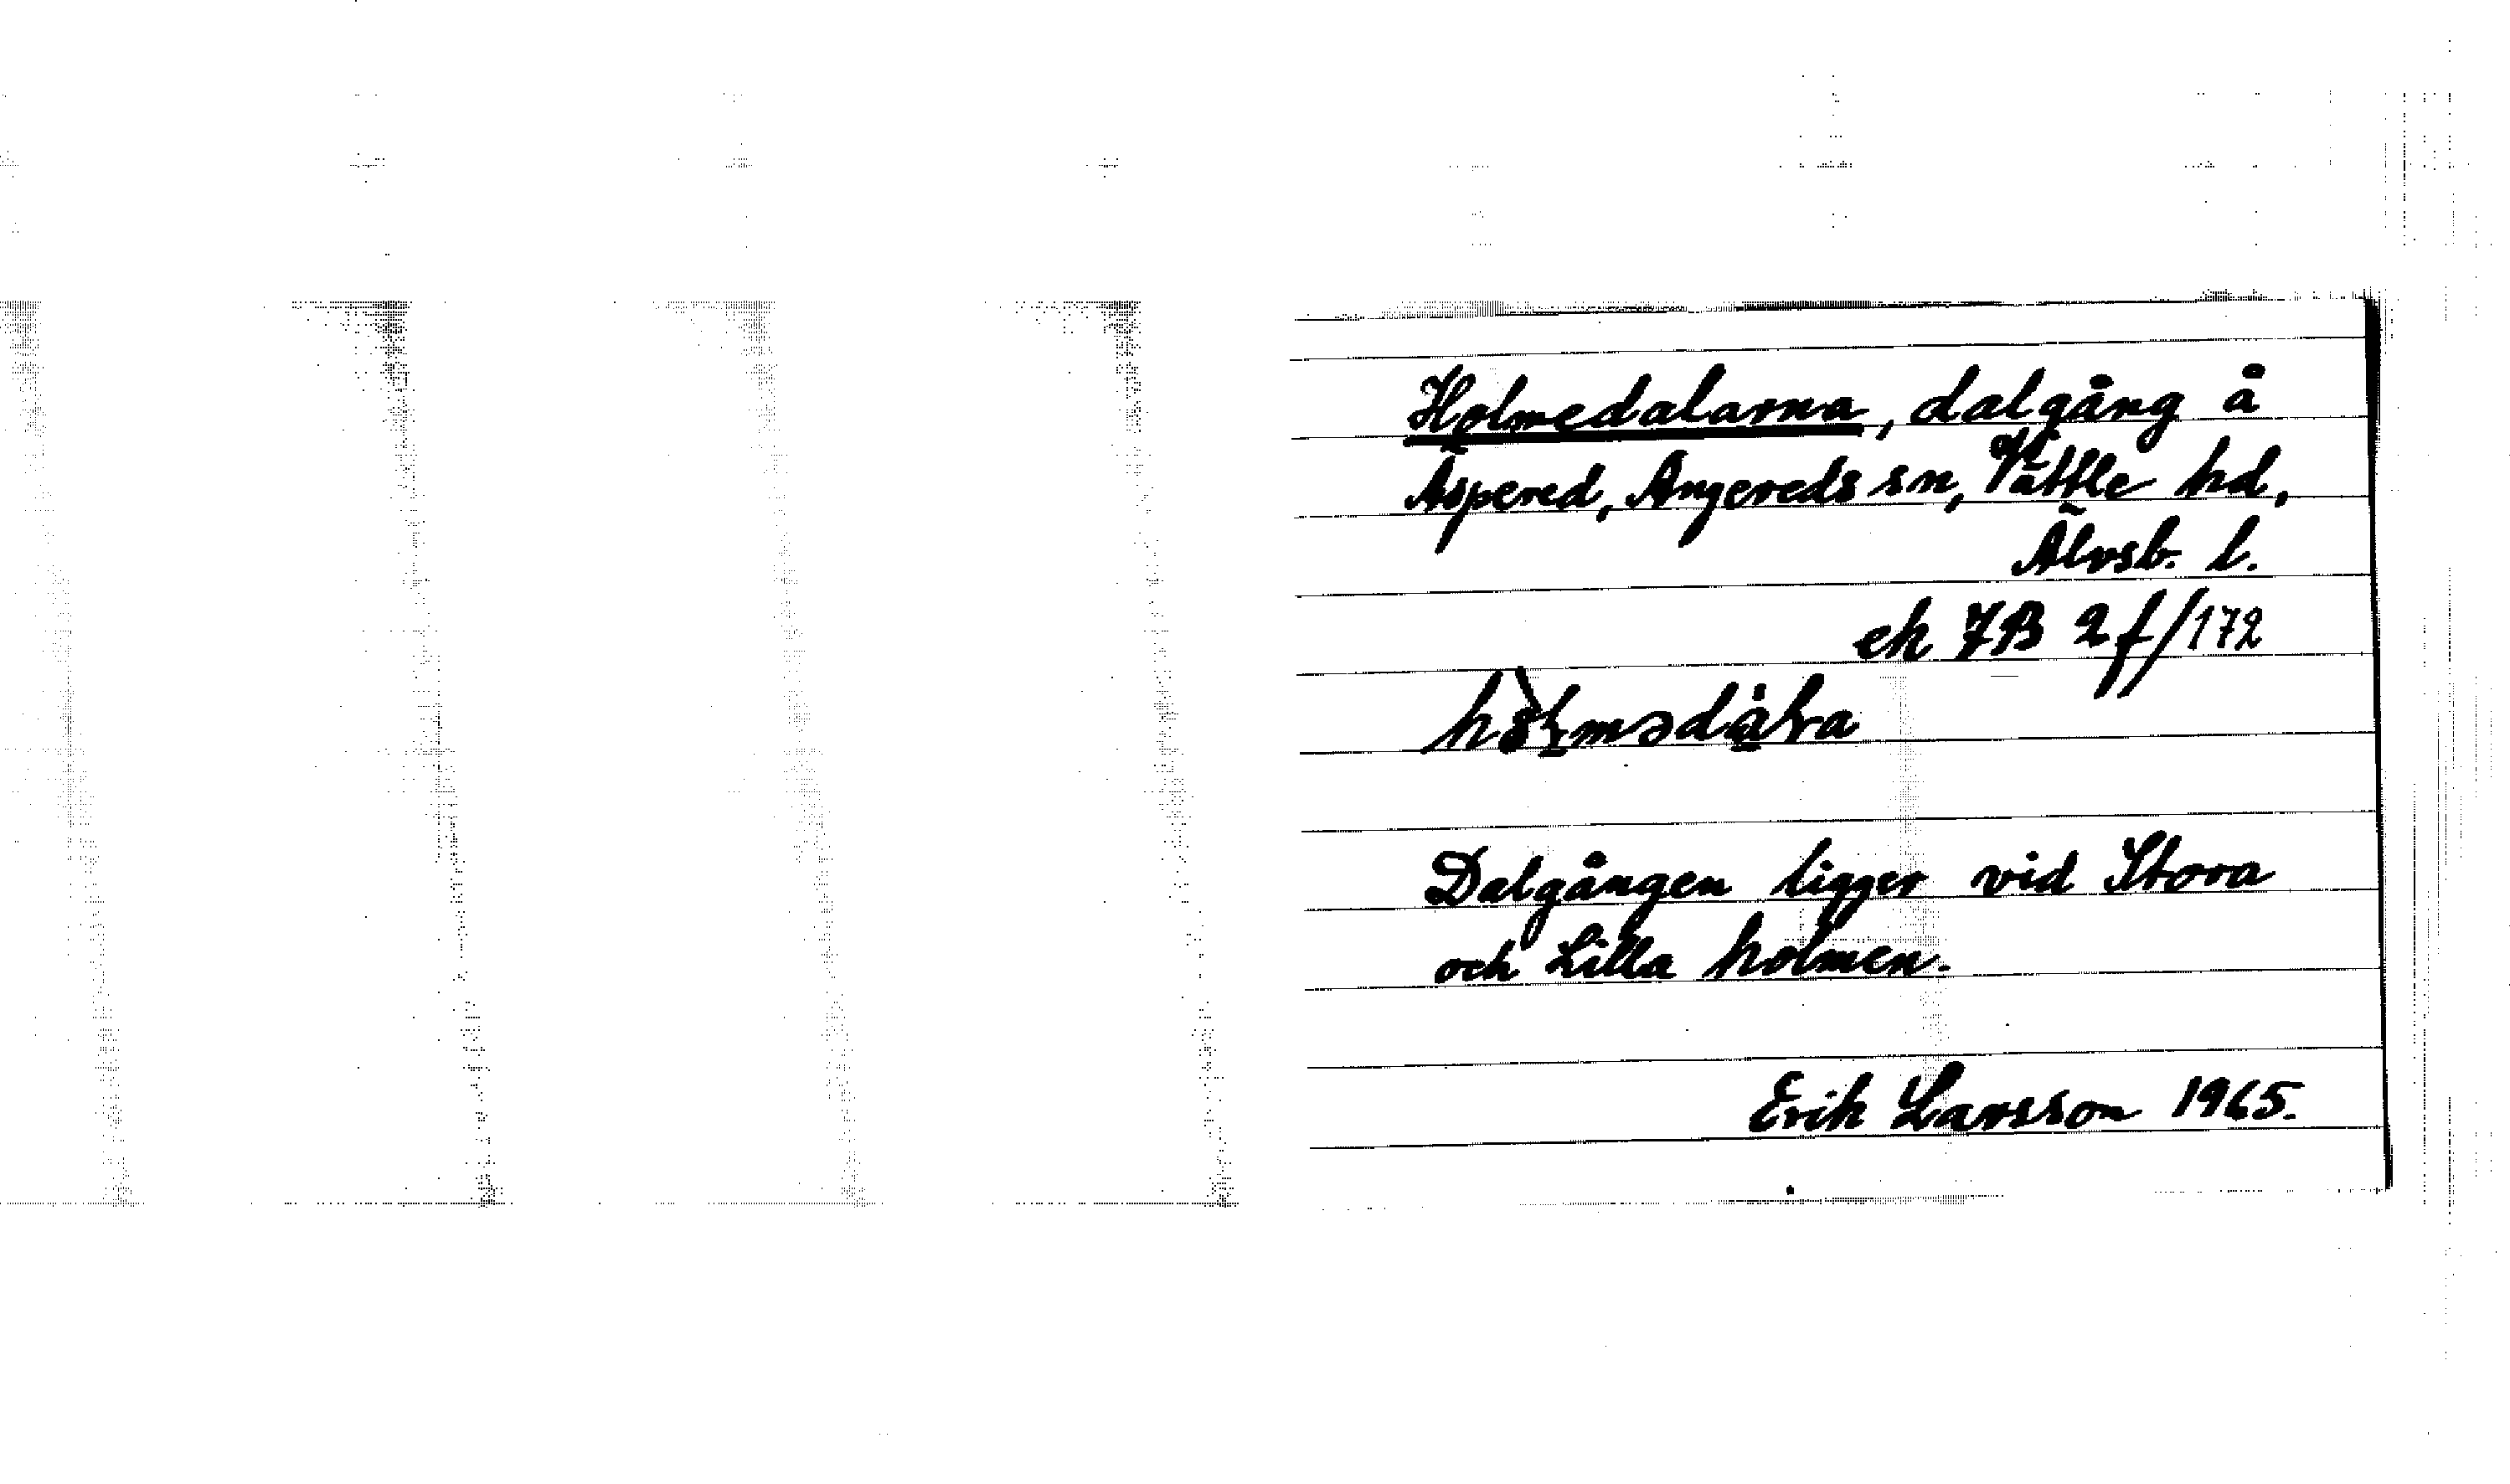 Holmedalarna, dalgång å
Äspered, Angereds sn, Vättle hd,
Älvsb. l.
ek 7B 2f/172
Dalgången ligger vid Stora
och Lilla holmen.
Erik Larsson 1965.